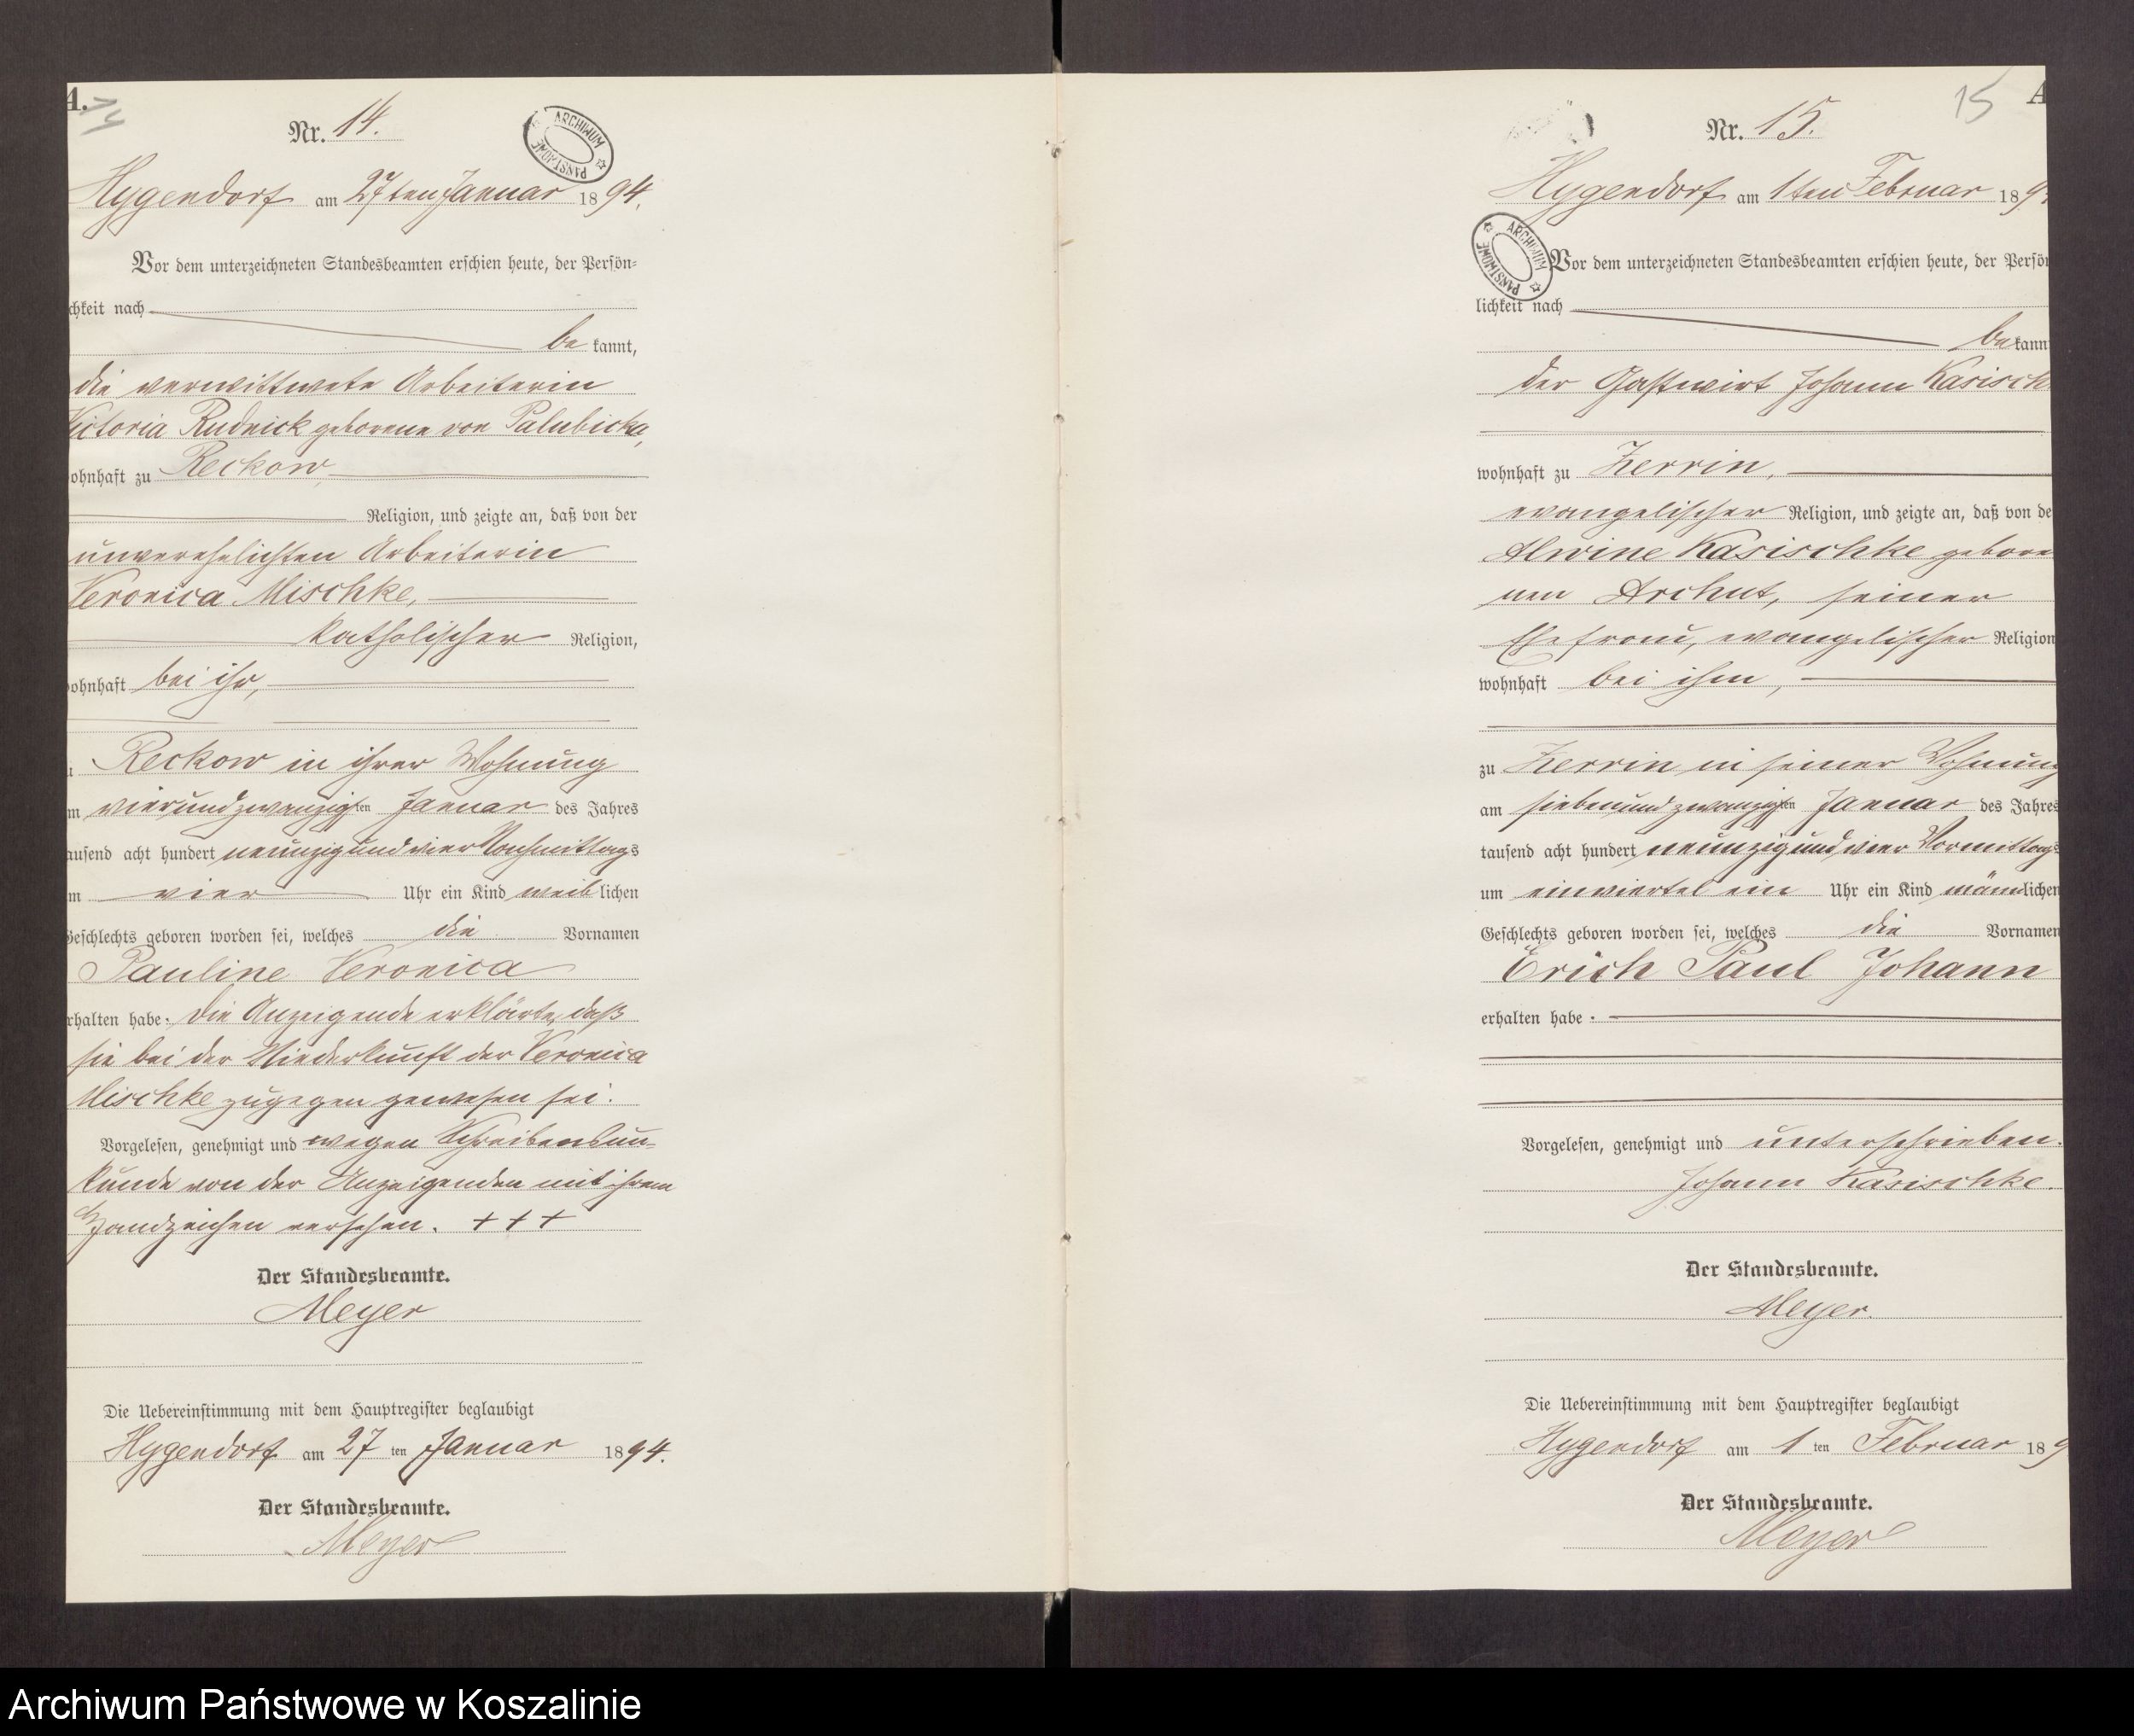 A.
14
Nr. 14.
ARCHIWUM PAŃSTWOWE
Hygendorf am 27ten Januar 1894.
Vor dem unterzeichneten Standesbeamten erschien heute, der Persön=
chkeit nach
be kannt,
die verwittwete Arbeiterin
Victoria Rudnick geborene von Palubicka,
ohnhaft zu Reckow,
Religion, und zeigte an, daß von der
unverehelichten Arbeiterin
Veronica Mischke,
katholischer Religion,
ohnhaft bei ihr,
Reckow in ihrer Wohnung
m vierundzwanzigsten Januar des Jahres
ausend acht hundert neunzig und vier Nachmittags
m vier Uhr ein Kind weiblichen
Geschlechts geboren worden sei, welches die Vornamen
Pauline Veronica
rhalten habe. Die Anzeigende erklärte, daß
sie bei der Niederkunft der Veronica
Mischke zugegen gewesen sei.
Vorgelesen, genehmigt und wegen Schreibensun=
kunde von der Anzeigenden mit ihrem
Handzeichen versehen. + + +
Der Standesbeamte.
Meyer
Die Uebereinstimmung mit dem Hauptregister beglaubigt
Hygendorf am 27 ten Januar 1894.
Der Standesbeamte.
Meyer
15
A
Nr. 15.
Hygendorf am 1ten Februar 189
ARCHIWUM PAŃSTWOWE
Vor dem unterzeichneten Standesbeamten erschien heute, der Persön
lichkeit nach
be kann
der Gastwirt Johann Kasischk
wohnhaft zu Zerrin,
evangelischer Religion, und zeigte an, daß von de
Alwine Kasischke gebore
nen Archut, seiner
Ehefrau, evangelischer Religion
wohnhaft bei ihm,
zu Zerrin in seiner Wohnung
am siebenundzwanzigsten Januar des Jahres
tausend acht hundert neunzig und vier Vormittags
um einviertel ein Uhr ein Kind männlichen
Geschlechts geboren worden sei, welches die Vornamen
Erich Paul Johann
erhalten habe.
Vorgelesen, genehmigt und unterschrieben.
Johann Kasischke.
Der Standesbeamte.
Meyer.
Die Uebereinstimmung mit dem Hauptregister beglaubigt
Hygendorf am 1 ten Februar 189
Der Standesbeamte.
Meyer
Archiwum Państwowe w Koszalinie